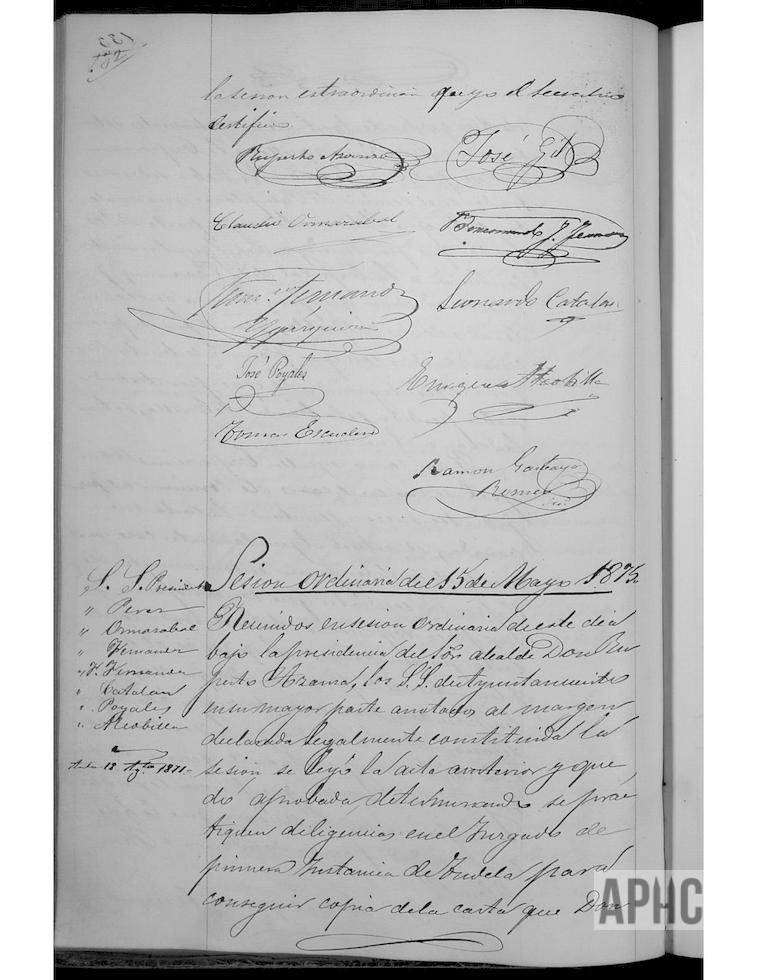 la sesion extraordinaria que yo el Secretario
Certifico.
Ruperto Azarra
José Gil
Claudio Ormazabal
J. Fernandez
Leonardo Catalan
José Poyales
Enrique Alcobilla
Tomas Escudero
Ramon Garbayo
Sesion Ordinaria del 15 de Mayo 1875.
S. S. Presidente
" Perez
" Ormazabal
" Fernandez
" F. Fernandez
" Catalan
" Poyales
" Alcobilla
13 Agto 1871.
Reunidos en sesion Ordinaria de este dia
bajo la presidencia del Sor. alcalde Don Ru
perto Azarra, los S.S. de Ayuntamiento
en su mayor parte anotados al margen
declarada legalmente constituida la
sesion se leyó la acta anterior y que
dó aprobada, determinando se prac
tiquen diligencias en el Juzgado de
primera Instancia de Tudela para
conseguir copia de la carta que Don
APHC